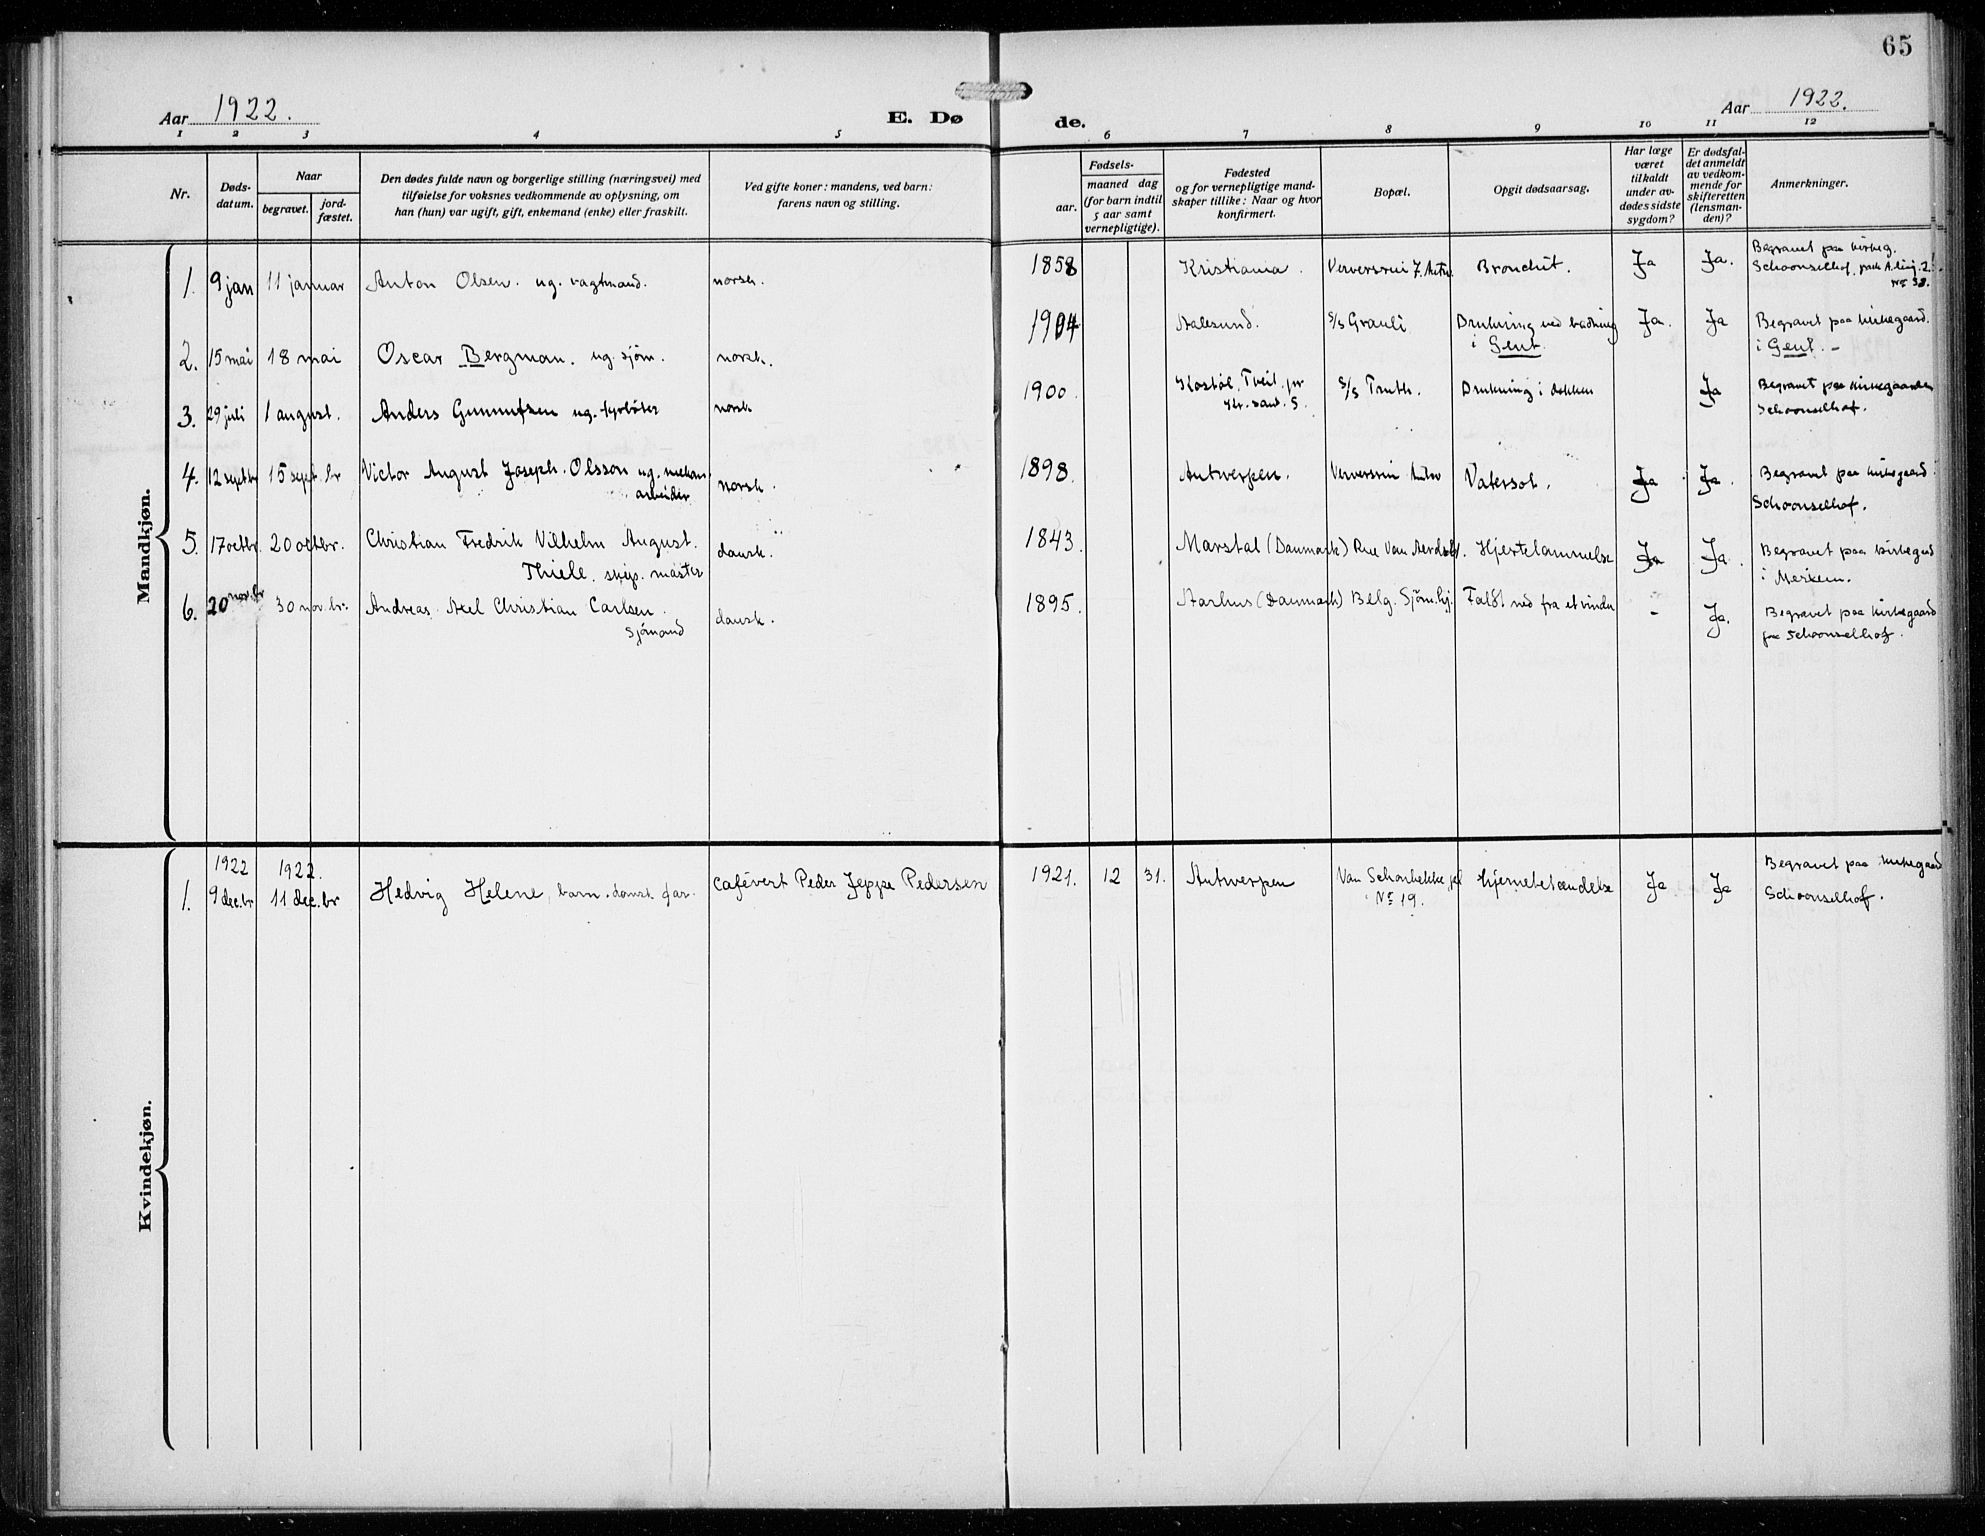 65
Aar 1922.
E. Døde.
Aar 1922.
1 2 3 4 5 6 7 8 9 10 11 12
Nr.
Døds-
datum.
Naar
begravet.
jord-
fæstet.
Den dødes fulde navn og borgerlige stilling (næringsvei) med
tilføielse for voksnes vedkommende av oplysning, om
han (hun) var ugift, gift, enkemand (enke) eller fraskilt.
Ved gifte koner: mandens, ved barn:
farens navn og stilling.
Fødsels-
aar.
maaned dag
(for barn indtil
5 aar samt
vernepligtige).
Fødested
og for vernepligtige mand-
skaper tillike: Naar og hvor
konfirmert.
Bopæl.
Opgit dødsaarsag.
Har læge
været
tilkaldt
under av-
dødes sidste
sygdom?
Er dødsfal-
det anmeldt
av vedkom-
mende for
skifteretten
(lensman-
den)?
Anmerkninger.
Mandkjøn.
1. 9 jan 11 januar Anton Olsen. ug. vagtmand. norsk. 1858 Kristiania. Verversrui 7. Antw. Bronchit. Ja Ja. Begravet paa kirkeg.
Schoonselhof,
No 38.
2. 15 mai 18 mai Oscar Bergman. ug. sjøm. norsk. 1904 Aalesund. s/s Grauli Drukning ved badning Ja. Ja Begravet paa kirkegaard.
i Gent. i Gent. –
3. 29 juli 1 august. Anders Gunnufsen ug. fyrbøter norsk 1900. Tveit. pr s/s Truth. Drukning i dokken Ja Begravet paa kirkegaarden
Kr. sand. S. Schoonselhof.
4. 12 septbr 15 sept. br Victor August Joseph. Olsson ug. mekan. norsk. 1898. Antwerpen. Verversrui Antw Ja Ja. Begravet paa kirkegaard
arbeider Schoonselhof.
5. 17 octbr. 20 octbr. Christian Fredrik Vilhelm August. dansk. 1843. Marstal (Danmark) Rue Van Hjertelammelse Ja Ja. Begravet paa kirkegaard
Thiele. skip. master i Merxem.
6. 20 nov. br 30 nov. br. Andreas Axel Christian Carlsen. dansk. 1895. Aarhus (Danmark) Belg. Sjømhj. Faldt ned fra et vindu – Ja. Begravet paa kirkegaard
Sjømand paa Schoonselhof.
Kvindekjøn.
1922 1922.
1. 9 dec. br 11 dec. br Hedvig Helene, barn. dansk far. Cafévert Peder Jeppe Pedersen 1921. 12 31. Antwerpen Van Hjernebetændelse Ja Ja Begravet paa kirkegaard
No 19. Schoonselhof.